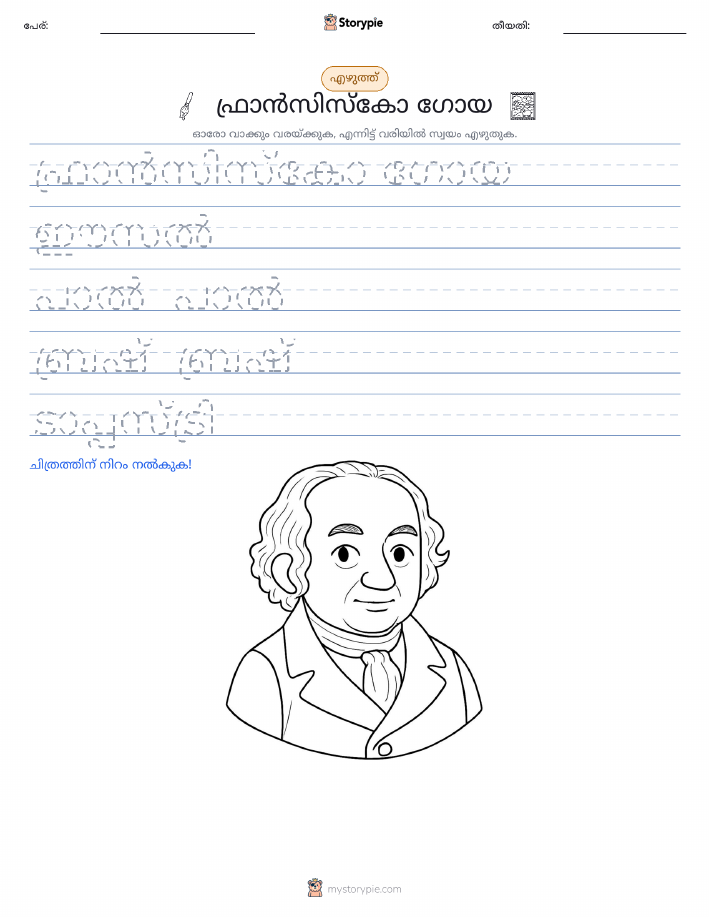 പേര്: Storypie തീയതി:
എഴുത്ത്
ഫ്രാൻസിസ്കോ ഗോയ
ഓരോ വാക്കും വരയ്ക്കുക, എന്നിട്ട് വരിയിൽ സ്വയം എഴുതുക.
ഫ്രാൻസിസ്കോ ഗോയ
ഈസൽ
പാൽ പാൽ
ബ്രഷ് ബ്രഷ്
ടാപ്പസ്ട്രി
ചിത്രത്തിന് നിറം നൽകുക!
mystorypie.com